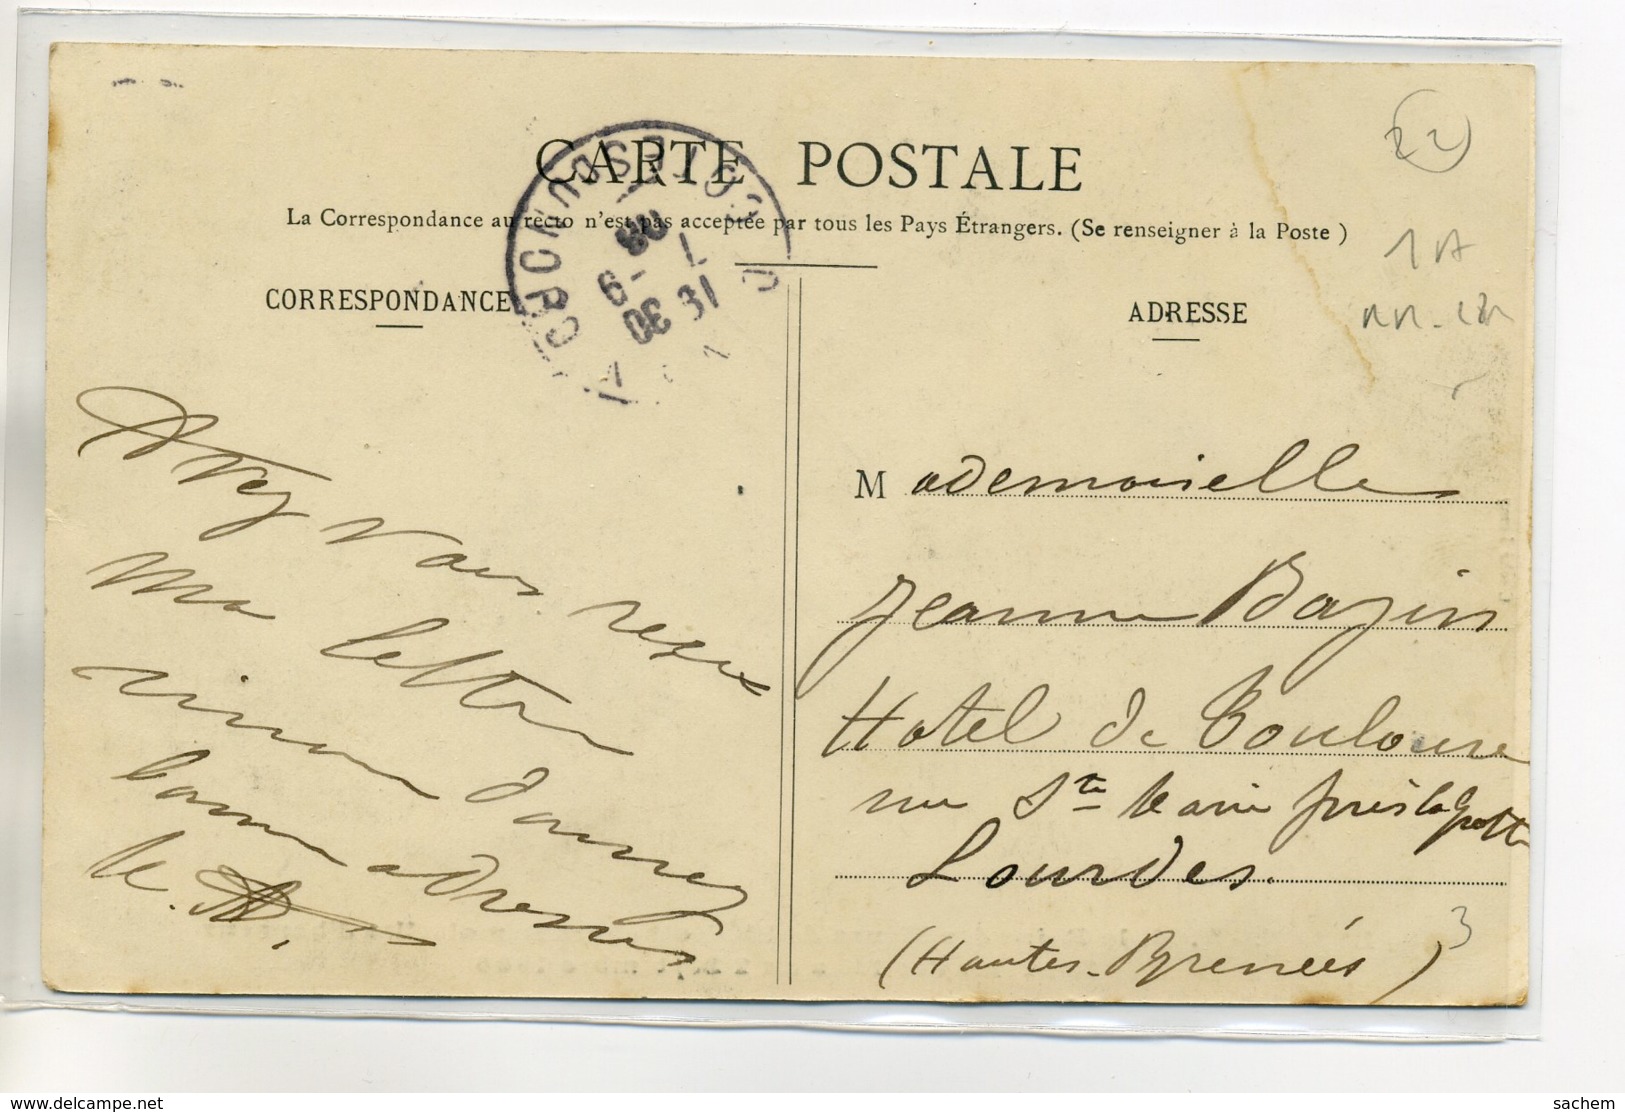 CARTE POSTALE
La Correspondance au recto n'est pas acceptée par tous les Pays Étrangers. (Se renseigner à la Poste)
CORRESPONDANCE
Avez vous reçu
ma lettre
sinon donnez
bonne adresse
le.
ADRESSE
Mademoiselle
Jeanne Bazin
Hotel de Toulouse
rue Ste Marie près la Grotte
Lourdes.
(Hautes-Pyrénées)
22
3
9-30
31-7
08
https://www.delcampe.net
sachem